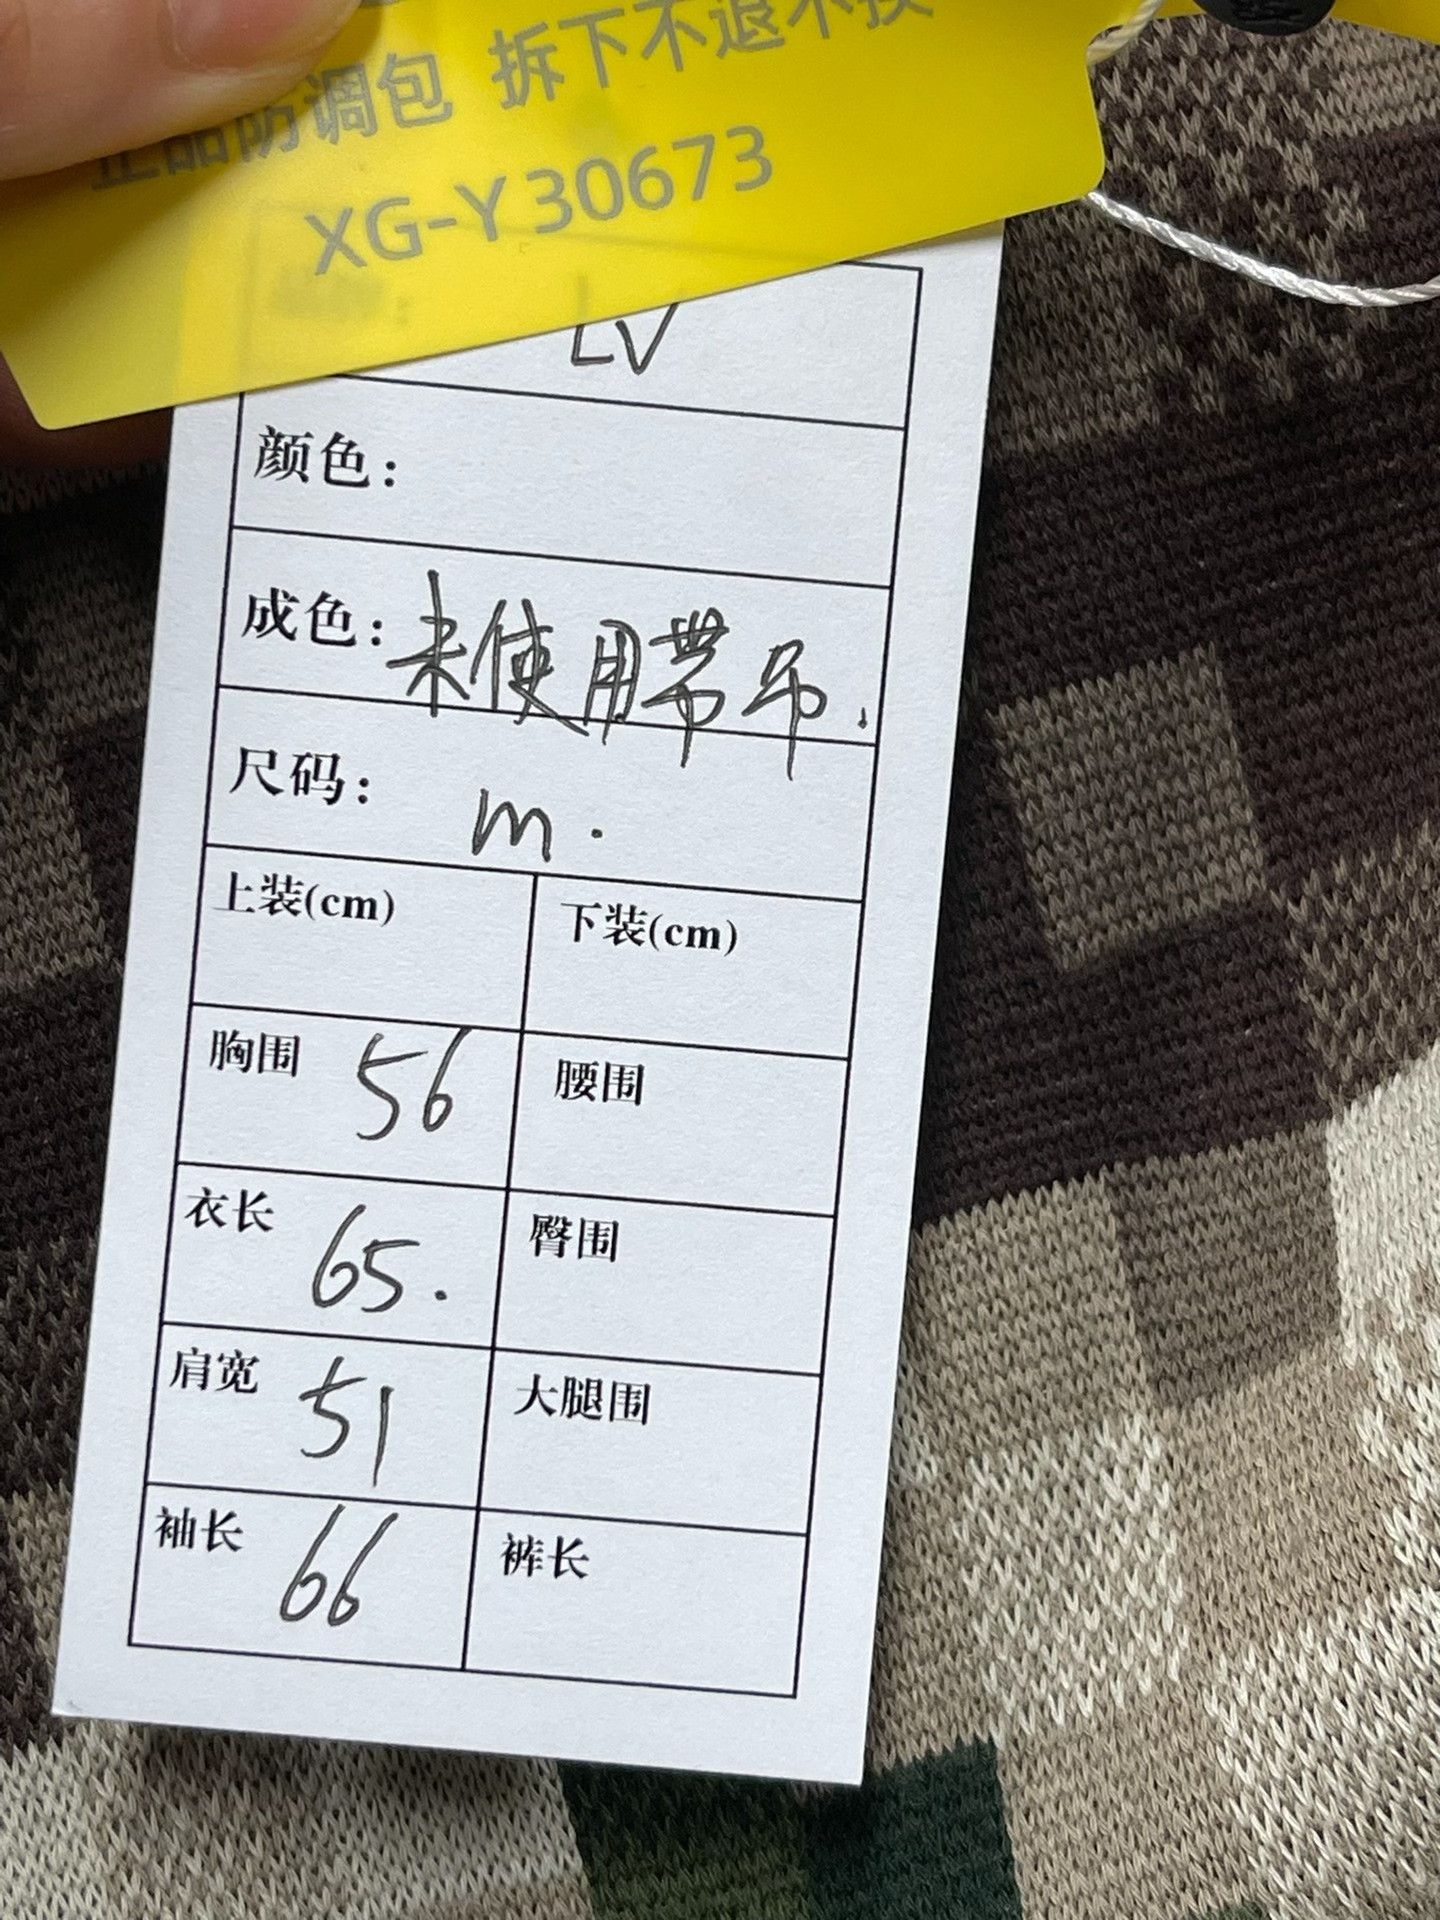 正品防调包 拆下不退不换
XG-Y30673
LV
颜色：
成色：未使用带吊.
尺码：m.
上装(cm) 下装(cm)
胸围 56 腰围
衣长 65. 臀围
肩宽 51 大腿围
袖长 66 裤长